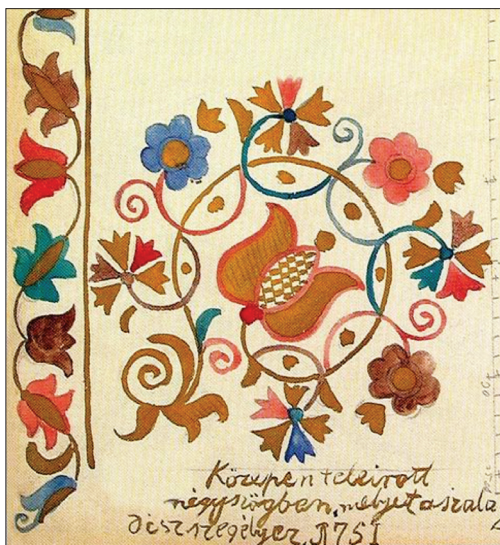 Közepén teleirott
négyszögben, melyet a szala
díszszegélyez, 1751